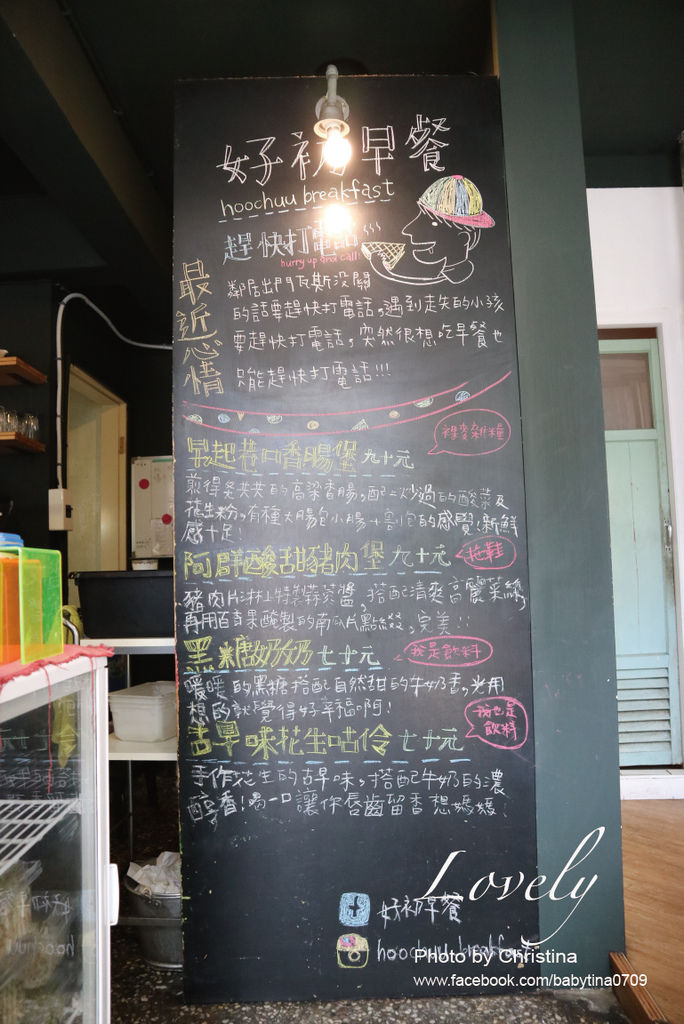 好初早餐
hoochuu breakfast
趕快打電話
hurry up and call!
最近心情
鄰居出門瓦斯沒關
的話要趕快打電話，遇到走失的小孩
要趕快打電話，突然很想吃早餐也
只能趕快打電話!!!
裸麥雜糧
早起巷口香腸堡 九十元
煎得癸癸的高粱香腸，配二次炒過的酸菜及
花生粉，有種大腸包小腸+割包的感覺!新鮮
感十足!
阿群酸甜豬肉堡 九十元
拖鞋
豬肉片淋上特製蒜蓉醬，搭配清爽高麗菜絲，
再用百香果醃製的南瓜片點綴，完美!!
黑糖奶奶 七十元
我是飲料
暖暖的黑糖搭配自然甜的牛奶香，光用
想的就覺得好幸福啊!
古早味花生咕伶 七十元
我也是
飲料
手作花生的古早味，搭配牛奶的濃
醇香!喝一口讓你唇齒留香想媽媽!
好初早餐
hoochuu breakfast
Lovely
Photo by Christina
www.facebook.com/babytina0709